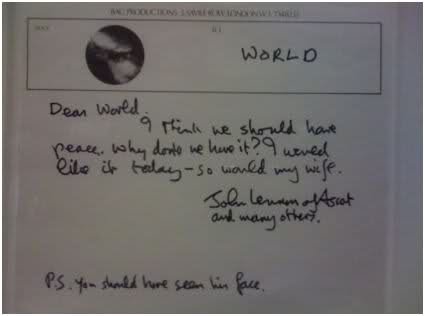 BAG PRODUCTIONS 3, SAVILE ROW, LONDON W1
TO
WORLD
Dear World.
I think we should have
peace. Why don't we have it? I would
like it today - so would my wife.
John Lennon of Ascot
and many others.
P.S. You should have seen his face.